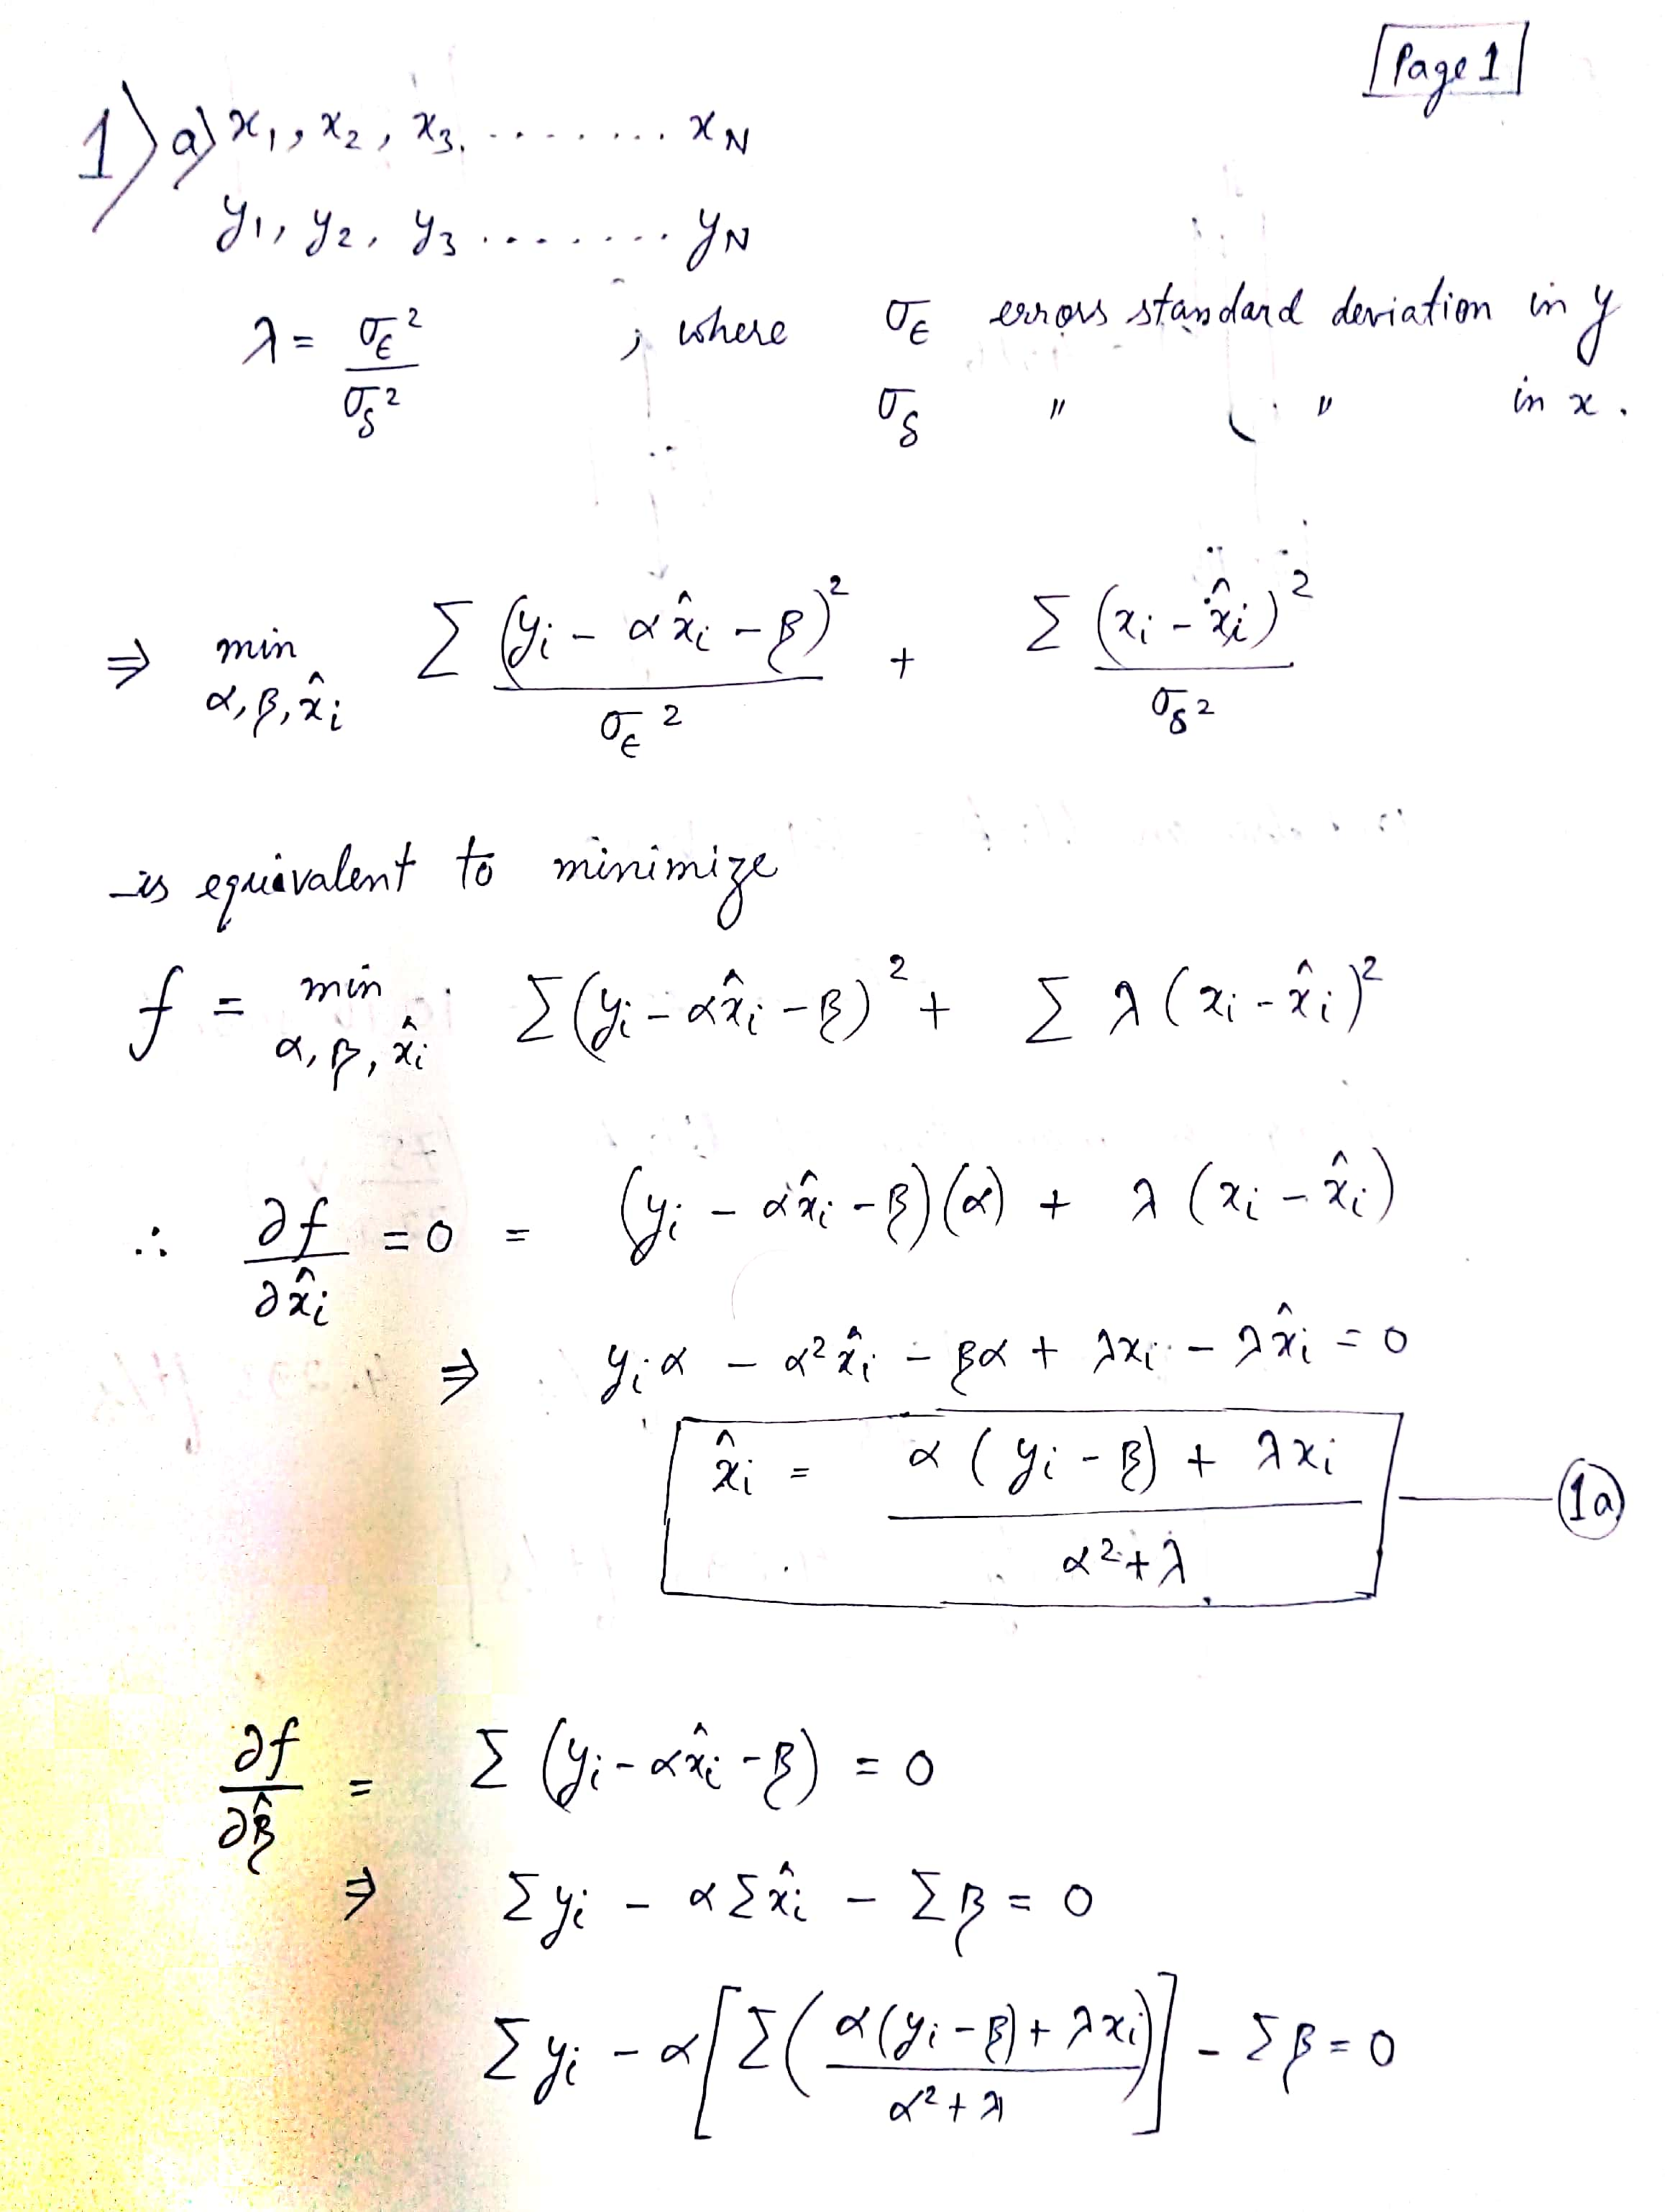 Page 1
1) a) x₁, x₂, x₃, ........ x_N
y₁, y₂, y₃ ........ y_N
λ = σ_ϵ² / σ_δ² ; where σ_ϵ errors standard deviation in y
σ_δ " " in x.
⇒ min_{α, β, x̂ᵢ} Σ (yᵢ - αx̂ᵢ - β)² / σ_ϵ² + Σ (xᵢ - x̂ᵢ)² / σ_δ²
is equivalent to minimize
f = min_{α, β, x̂ᵢ} Σ(yᵢ - αx̂ᵢ - β)² + Σ λ(xᵢ - x̂ᵢ)²
∴ ∂f/∂x̂ᵢ = 0 = (yᵢ - αx̂ᵢ - β)(α) + λ(xᵢ - x̂ᵢ)
⇒ yᵢα - α²x̂ᵢ - βα + λxᵢ - λx̂ᵢ = 0
x̂ᵢ = (α(yᵢ - β) + λxᵢ) / (α² + λ) — (1a)
∂f/∂β̂ = Σ (yᵢ - αx̂ᵢ - β) = 0
⇒ Σyᵢ - αΣx̂ᵢ - Σβ = 0
Σyᵢ - α[Σ((α(yᵢ - β) + λxᵢ) / (α² + λ))] - Σβ = 0